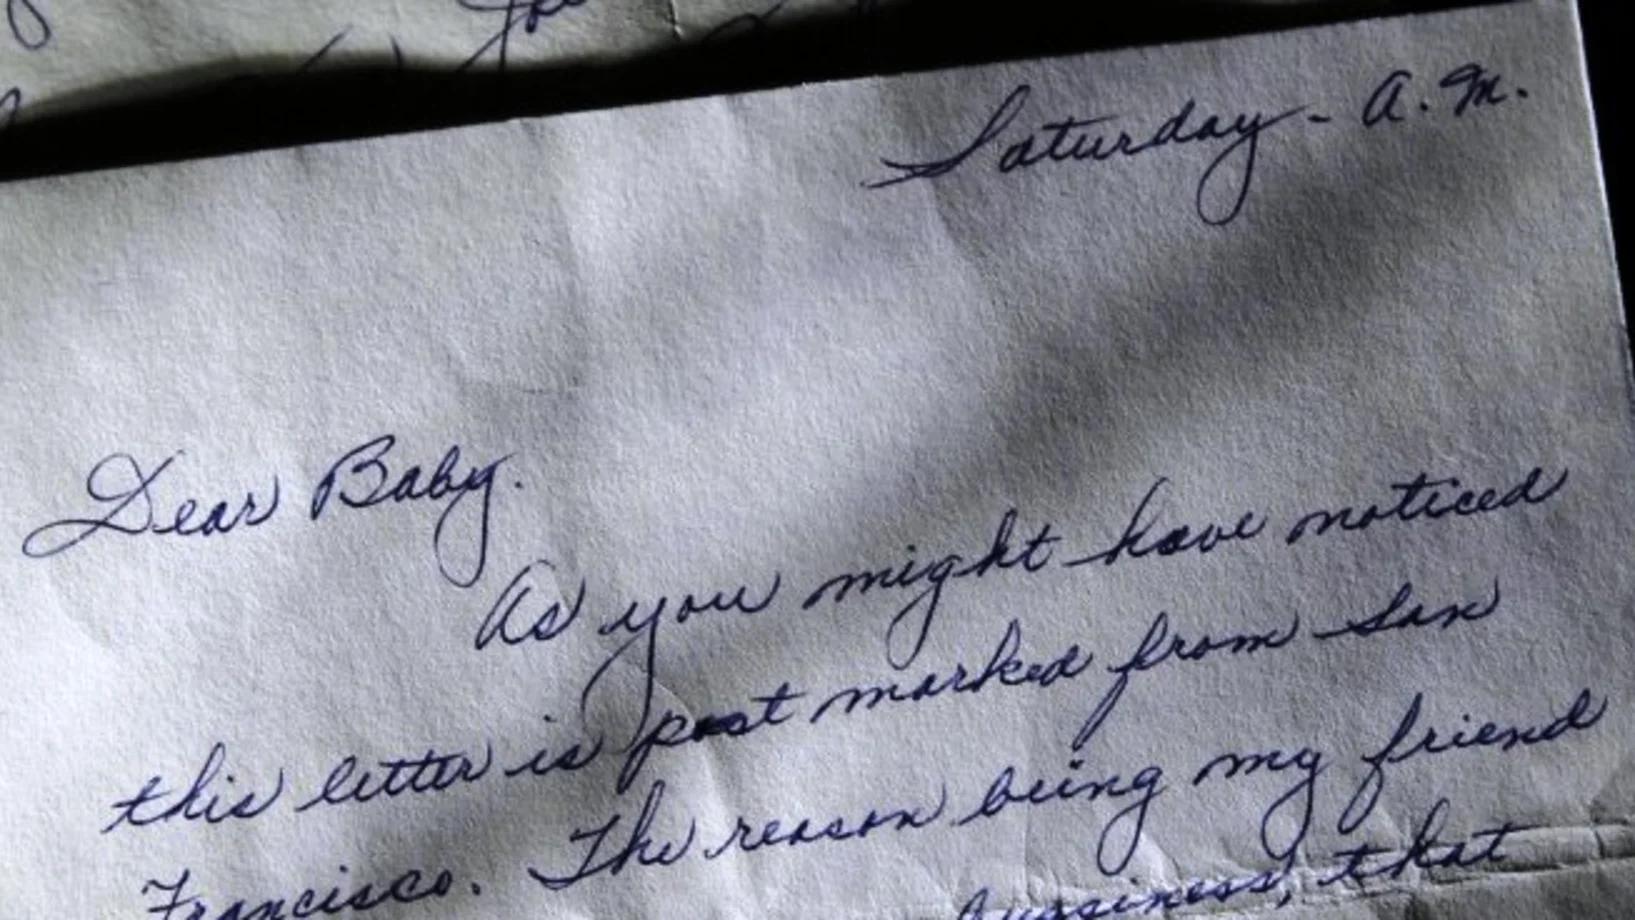 Saturday - A.M.
Dear Baby.
As you might have noticed
this letter is post marked from San
Francisco. The reason being my friend
bussiness, that